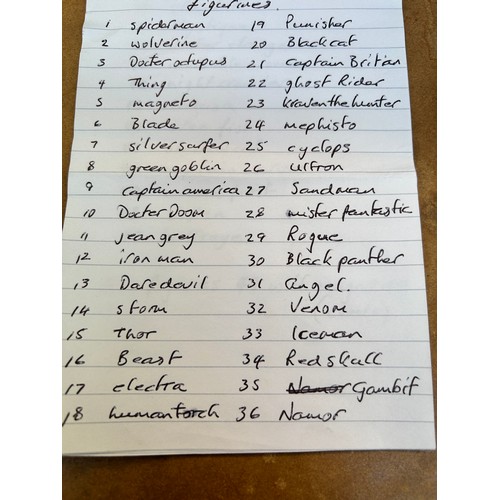 figurines.
1 spiderman 19 Punisher
2 wolverine 20 Blackcat
3 Docteroctupus 21 Captain Britian
4 Thing 22 ghost Rider
5 magneto 23 kraventhehunter
6 Blade 24 mephisto
7 silversurfer 25 cyclops
8 greengoblin 26 ultron
9 captainamerica 27 Sandman
10 DocterDoom 28 mister fantastic
11 jeangrey 29 Rogue
12 iron man 30 Black panther
13 Daredevil 31 angel.
14 storm 32 Venom
15 Thor 33 Iceman
16 Beast 34 Redskull
17 electra 35 Namor Gambit
18 humantorch 36 Namor